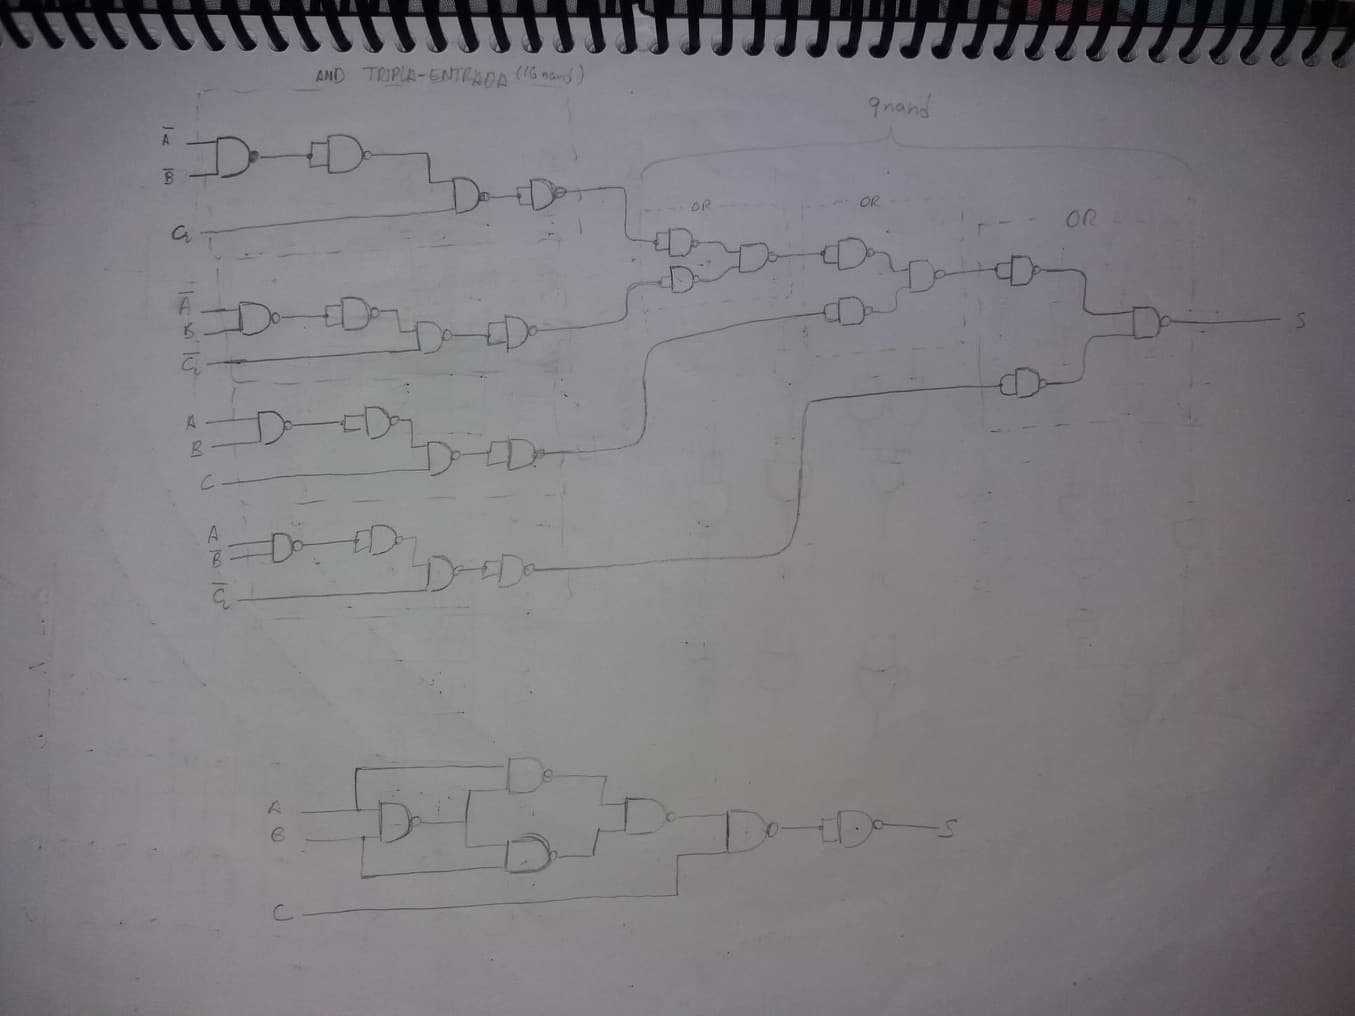 AND TRIPLA-ENTRADA (16 nand)
9nand
A̅
B̅
Ci
OR
OR
OR
A̅
B
C̅i
S
A
B
C
A
B̅
C̅i
A
B
S
C